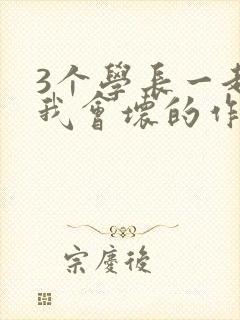 3个學長一
我會壞的作
宗慶後